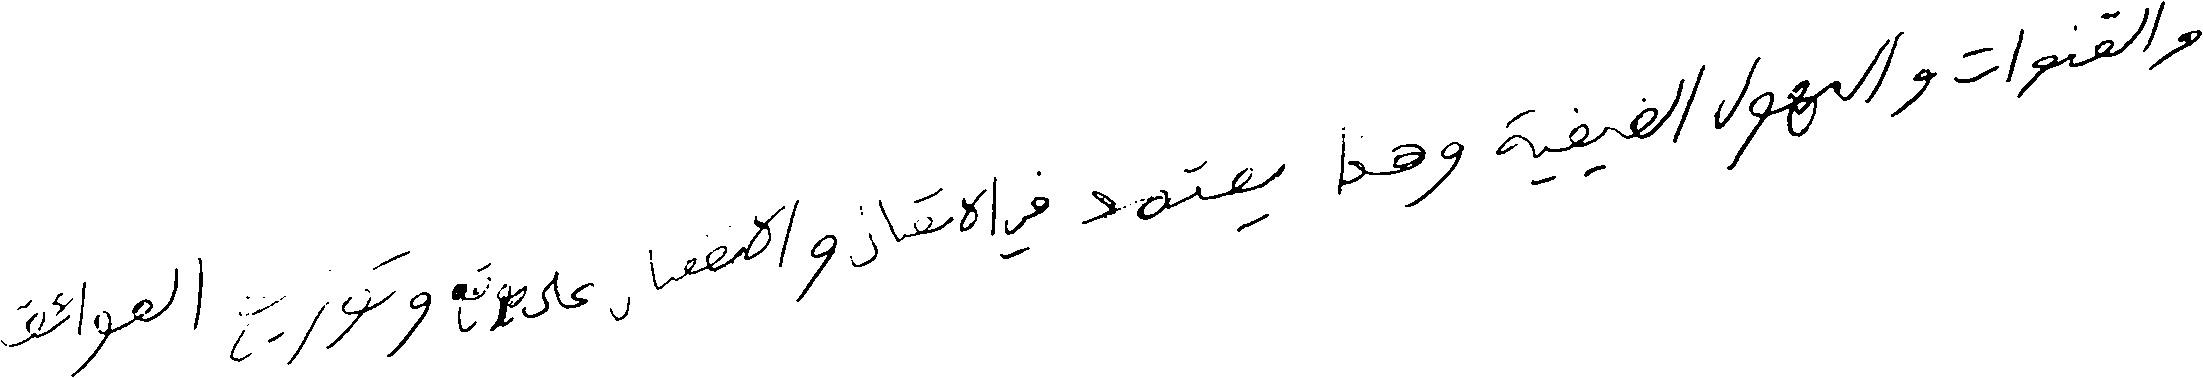 والقنوات والسهول الفيضية وهذا يعتمد في الانقاذ والانتشار على موقع وتوزيع العوائق